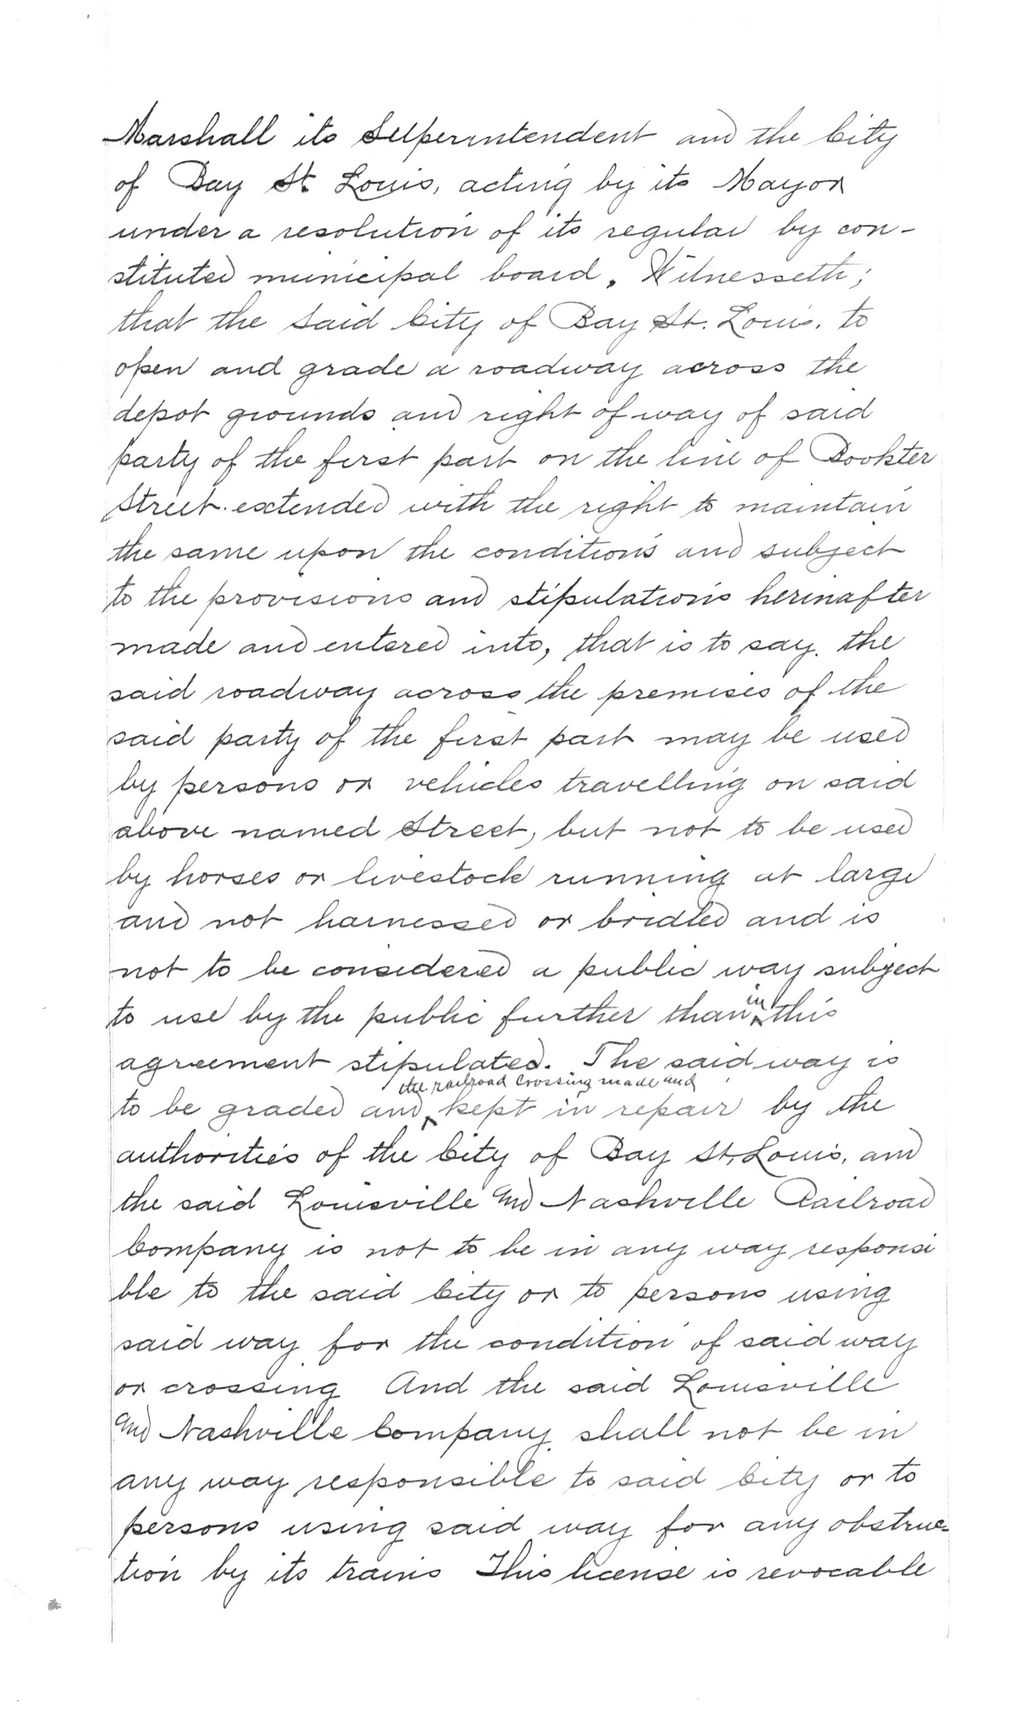 Marshall its Superintendent and the City
of Bay St. Louis, acting by its Mayor
under a resolution of its regular by con-
stituted municipal board. Witnesseth;
that the said City of Bay St. Louis. to
open and grade a roadway across the
depot grounds and right of way of said
party of the first part on the line of Bookter
Street. extended with the right to maintain
the same upon the conditions and subject
to the provisions and stipulations herinafter
made and entered into, that is to say. the
said roadway across the premises of the
said party of the first part may be used
by persons or vehicles travelling on said
above named Street, but not to be used
by horses or livestock running at large
and not harnessed or bridled and is
not to be considered a public way subject
to use by the public further than in this
agreement stipulated. The said way is
to be graded and the railroad crossing made and kept in repair by the
authorities of the City of Bay St. Louis, and
the said Louisville and Nashville Railroad
Company is not to be in any way responsi
ble to the said City or to persons using
said way for the condition of said way
or crossing And the said Louisville
and Nashville Company shall not be in
any way responsible to said City or to
persons using said way for any obstruc-
tion by its trains This license is revocable